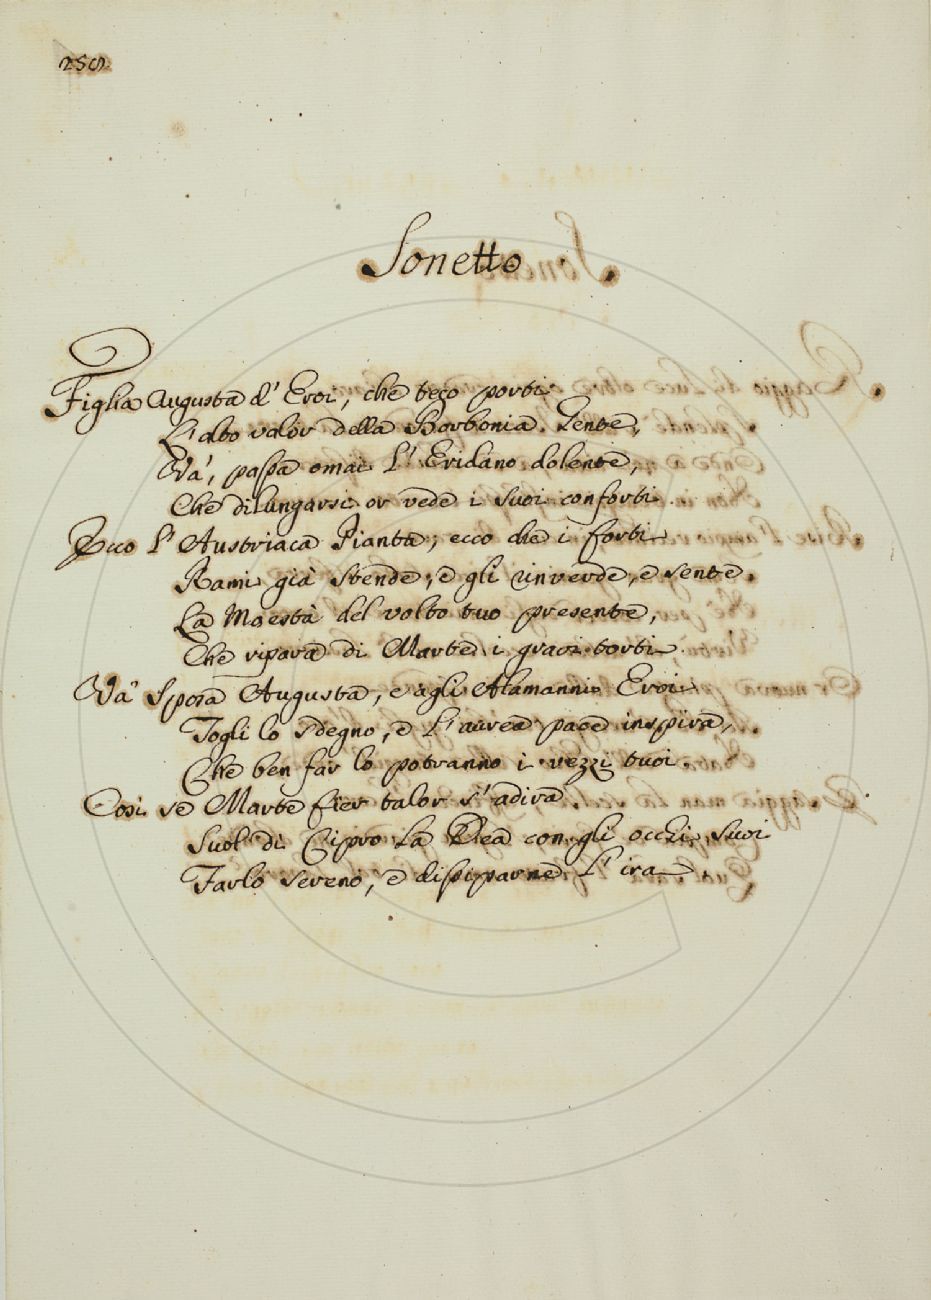 252
Sonetto
Figlia Augusta d' Eroi, che teco porti
L'alto valor della Borbonia Gente,
Và, passa omai L' Eridano dolente,
Che dilungarsi or vede i suoi conforti.
Ecco l' Austriaca Pianta, ecco che i forti
Rami già stende, e gli rinverde, e sente
La Maestà del volto tuo presente,
Che ripara di Marte i gravi torti.
Và Sposa Augusta, e agli Alamanni Eroi
Togli lo sdegno, e L'aurea pace inspira,
Che ben far lo potranno i vezzi tuoi.
Così se Marte fier talor s'adira
Suol di Cipro la Dea con gli occhi suoi
Farlo sereno, e dissiparne L' ira.